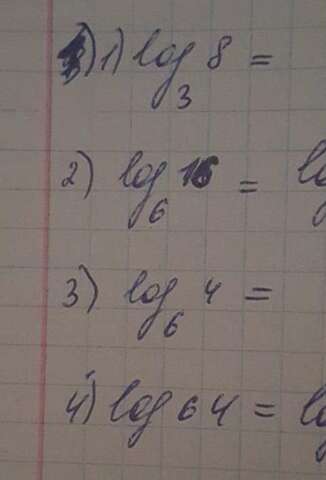 1) log₃ 8 =
2) log₆ 16 = lo
3) log₆ 4 =
4) log 64 = lo